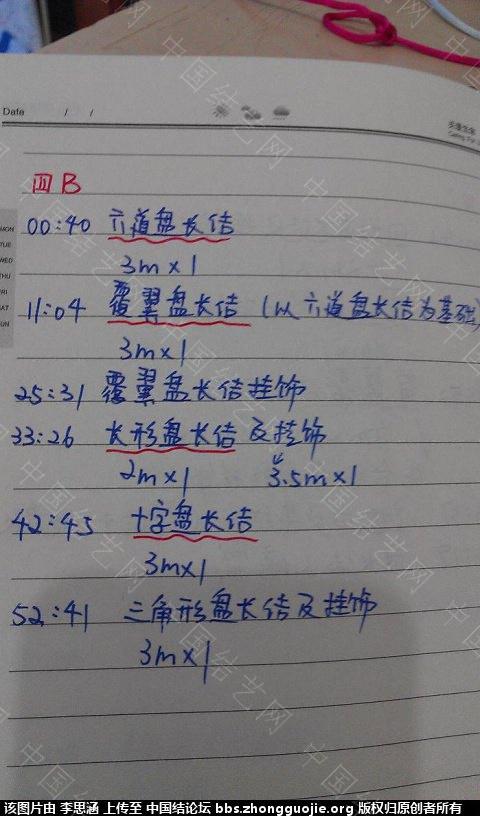 Date / /
天道恒筆
四B
00:40 六道盘长结
3m×1
11:04 覆翼盘长结 (以六道盘长结为基础)
3m×1
25:31 覆翼盘长结挂饰
33:26 长形盘长结及挂饰
2m×1 3.5m×1
42:45 十字盘长结
3m×1
52:41 三角形盘长结及挂饰
3m×1
MON
TUE
WED
THU
FRI
SAT
SUN
中国结艺网
该图片由 李思涵 上传至 中国结论坛 bbs.zhongguojie.org 版权归原创者所有